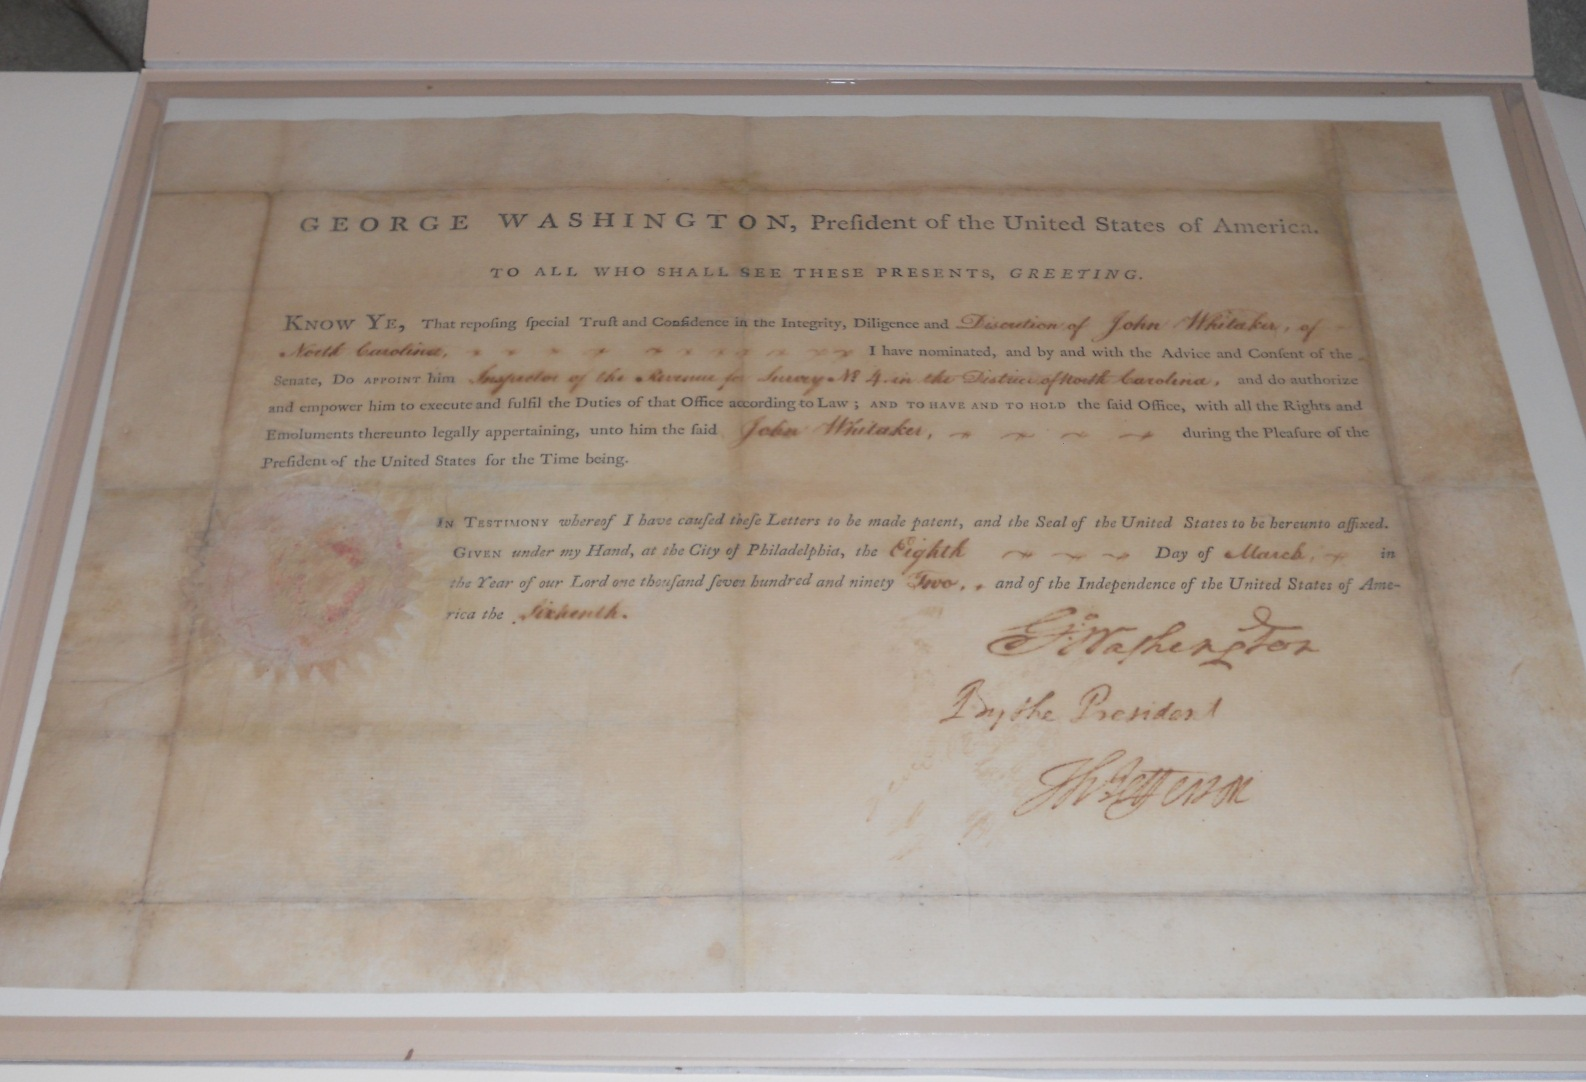 GEORGE WASHINGTON, Preſident of the United States of America.
TO ALL WHO SHALL SEE THESE PRESENTS, GREETING.
KNOW YE, That repoſing ſpecial Truſt and Confidence in the Integrity, Diligence and Discretion of John Whitaker, of
North Carolina, I have nominated, and by and with the Advice and Conſent of the
Senate, DO APPOINT him Inspector of the Revenue for Survey No. 4. in the District of North Carolina, and do authorize
and empower him to execute and fulfil the Duties of that Office according to Law; AND TO HAVE AND TO HOLD the ſaid Office, with all the Rights and
Emoluments thereunto legally appertaining, unto him the ſaid John Whitaker, during the Pleaſure of the
Preſident of the United States for the Time being.
IN TESTIMONY whereof I have cauſed theſe Letters to be made patent, and the Seal of the United States to be hereunto affixed.
GIVEN under my Hand, at the City of Philadelphia, the Eighth Day of March, in
the Year of our Lord one thouſand ſeven hundred and ninety Two, and of the Independence of the United States of Ame-
rica the Sixteenth.
Go: Washington
By the President
Th: Jefferson